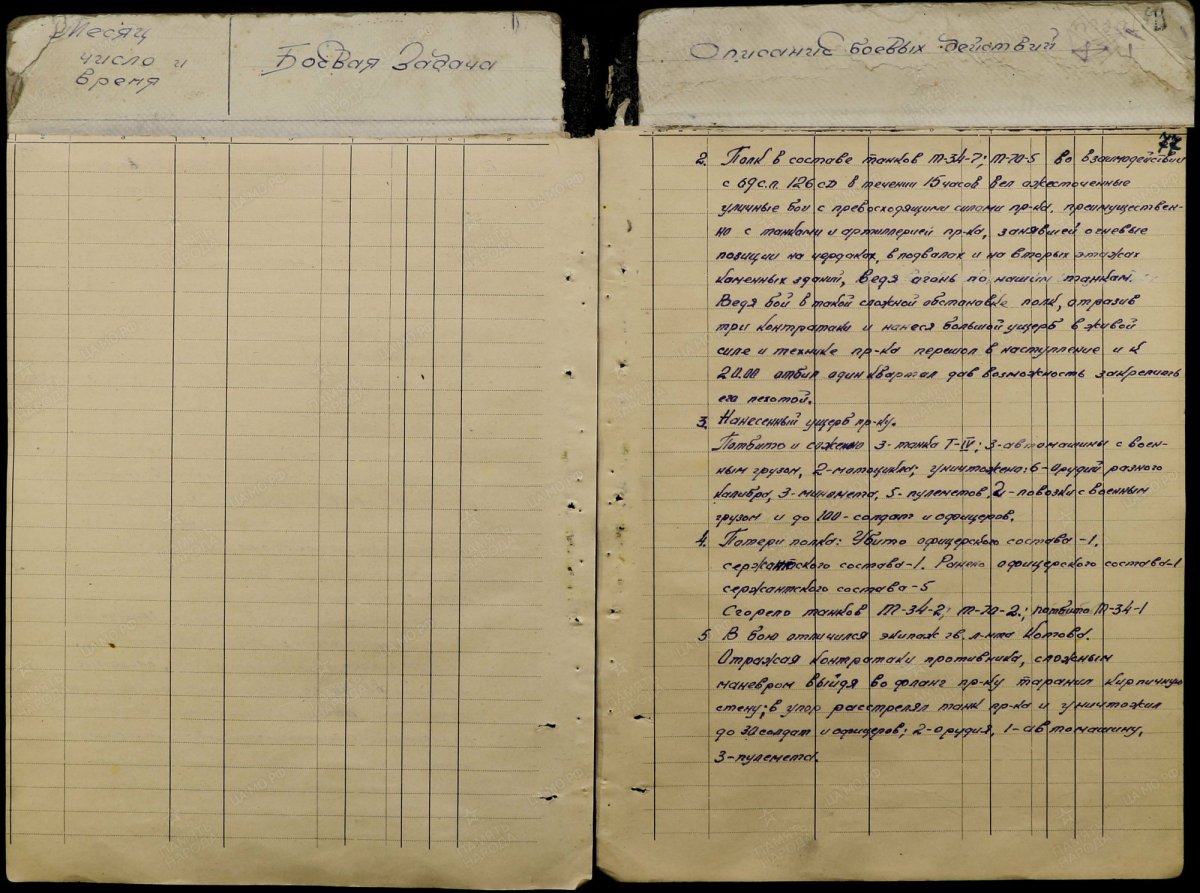 Месяц
число и
время
Боевая Задача
Описание боевых действий
77
2. Полк в составе танков Т-34-7; Т-70-5 во взаимодействии
с 69 с.п. 126 сд в течении 15 часов вел ожесточенные
уличные бои с превосходящими силами пр-ка, преимуществен-
но с танками и артиллерией пр-ка, занявшей огневые
позиции на чердаках, в подвалах и на вторых этажах
каменных зданий, ведя огонь по нашим танкам.
Ведя бой в такой сложной обстановке полк, отразив
три контратаки и нанеся большой ущерб в живой
силе и технике пр-ка перешол в наступление и к
20.00 отбил один квартал дав возможность закрепить
его пехотой.
3. Нанесенный ущерб пр-ку.
Подбито и сожжено 3-танка Т-IV; 3-автомашины с воен-
ным грузом, 2-мотоцикла; уничтожено: 6-орудий разного
калибра, 3-миномета, 5-пулеметов, 2-повозки с военным
грузом и до 100-солдат и офицеров.
4. Потери полка: Убито офицерского состава-1,
сержантского состава-1. Ранено офицерского состава-1
сержантского состава-5
Сгорело танков Т-34-2; Т-70-2.; подбито Т-34-1
5 В бою отличился экипаж гв. л-нта Котова.
Отражая контратаки противника, сложным
маневром выйдя во фланг пр-ку таранил кирпичную
стену; в упор расстрелял танк пр-ка и уничтожил
до 30 солдат и офицеров; 2-орудия, 1-автомашину,
3-пулемета.